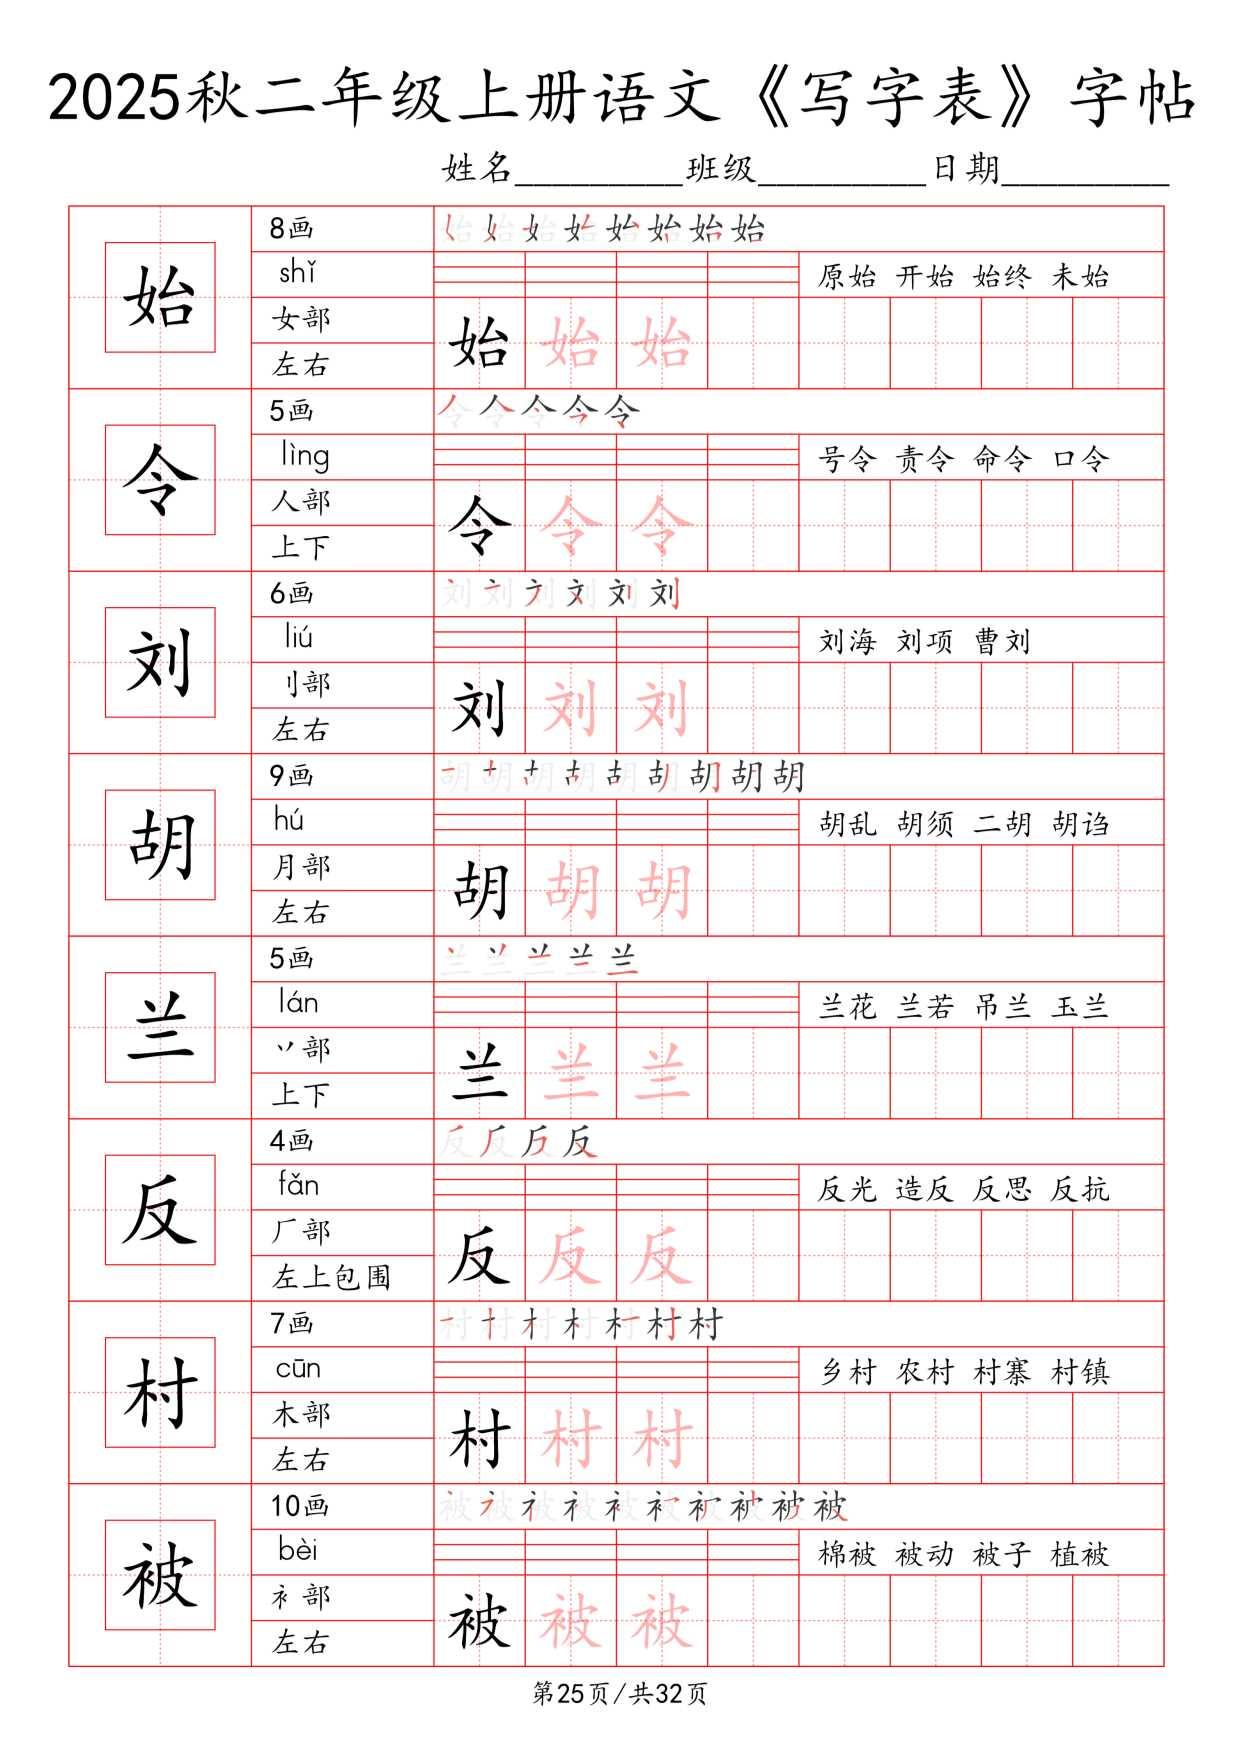 2025秋二年级上册语文《写字表》字帖
姓名_________班级_________日期_________
始
8画
shǐ
女部
左右
始 始 始 始 始 始 始 始
原始 开始 始终 未始
始 始 始
令
5画
lìng
人部
上下
令 令 令 令 令
号令 责令 命令 口令
令 令 令
刘
6画
liú
刂部
左右
刘 刘 刘 刘 刘 刘
刘海 刘项 曹刘
刘 刘 刘
胡
9画
hú
月部
左右
胡 胡 胡 胡 胡 胡 胡 胡 胡
胡乱 胡须 二胡 胡诌
胡 胡 胡
兰
5画
lán
丷部
上下
兰 兰 兰 兰 兰
兰花 兰若 吊兰 玉兰
兰 兰 兰
反
4画
fǎn
厂部
左上包围
反 反 反 反
反光 造反 反思 反抗
反 反 反
村
7画
cūn
木部
左右
村 村 村 村 村 村 村
乡村 农村 村寨 村镇
村 村 村
被
10画
bèi
衤部
左右
被 被 被 被 被 被 被 被 被 被
棉被 被动 被子 植被
被 被 被
第25页/共32页